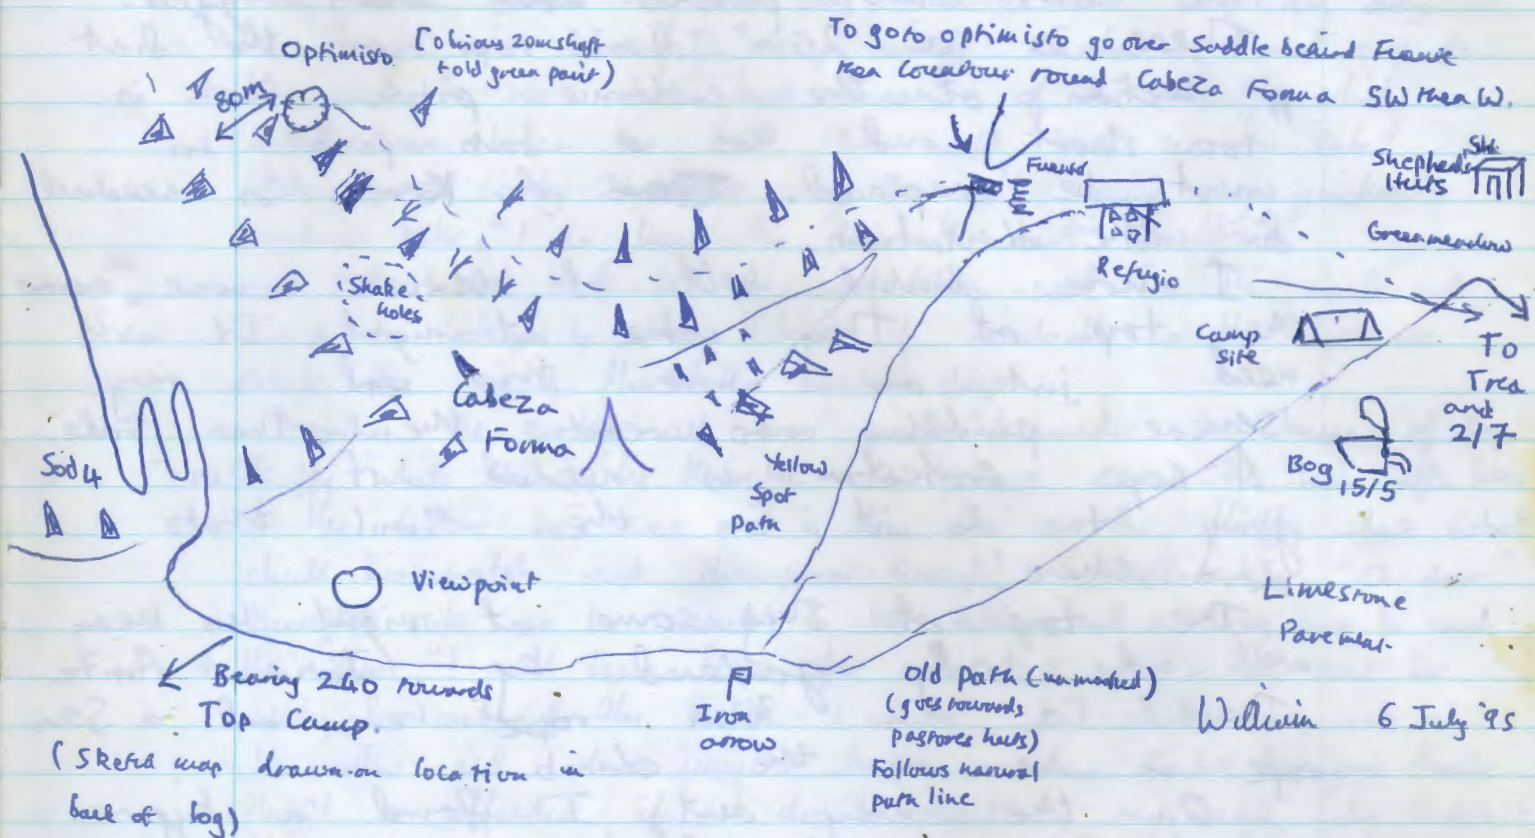 Optimisto. (obvious 20m shaft
+ old green paint)
80m
To go to optimisto go over Saddle behind Fuente
then contour round Cabeza Forma SW then W.
Shepherd's
Huts
Fuente
Refugio
Green meadow
Shake
holes
Camp
site
To
Trea
and
2/7
Cabeza
Forma
Sod 4
Yellow
Spot
Path
Bog
15/5
Viewpoint
Limestone
Pavement.
Bearing 240 towards
Top Camp.
Iron
arrow
Old Path (unmarked)
(goes towards
pastores huts)
Follows natural
path line
William 6 July '95
(Sketch map drawn on location in
back of log)